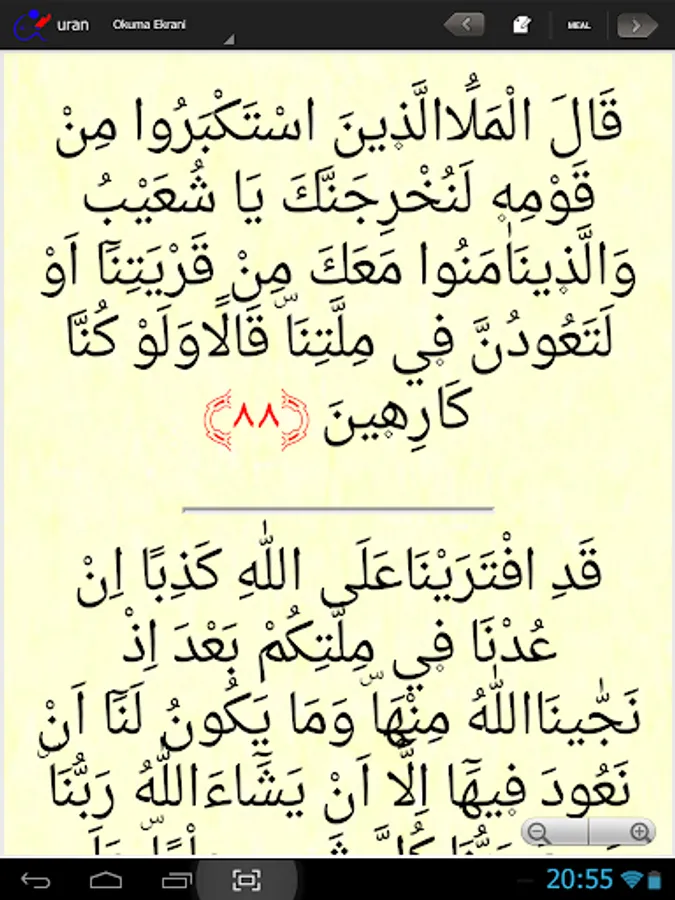 uran Okuma Ekrani MEAL
قَالَ الْمَلَاُالَّذ۪ينَ اسْتَكْبَرُوا مِنْ
قَوْمِه۪ لَنُخْرِجَنَّكَ يَا شُعَيْبُ
وَالَّذ۪ينَاٰمَنُوا مَعَكَ مِنْ قَرْيَتِنَٓا اَوْ
لَتَعُودُنَّ ف۪ي مِلَّتِنَاۜ قَالَاَوَلَوْ كُنَّا
كَارِه۪ينَ ﴿٨٨﴾
قَدِ افْتَرَيْنَاعَلَى اللّٰهِ كَذِبًا اِنْ
عُدْنَا ف۪ي مِلَّتِكُمْ بَعْدَ اِذْ
نَجّٰينَااللّٰهُ مِنْهَاۜ وَمَا يَكُونُ لَنَٓا اَنْ
نَعُودَ ف۪يهَٓا اِلَّٓا اَنْ يَشَٓاءَاللّٰهُ رَبُّنَاۜ
20:55